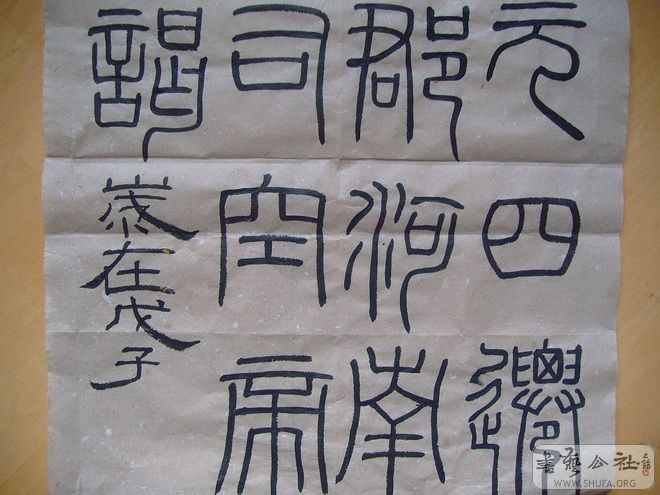 元四遷
郡河南
司空帝
謁
歲在戊子
書藝公社
WWW.SHUFA.ORG